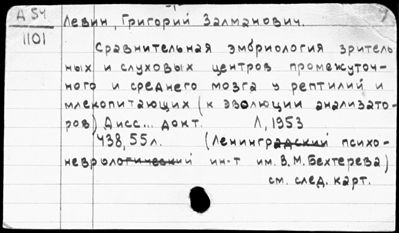 Д 54
1101
Левин, Григорий Залманович.
Сравнительная эмбриология зритель
ных и слуховых центров промежуточ-
ного и среднего мозга у рептилий и
млекопитающих (к эволюции анализато-
ров) Дисс... докт. Л, 1953
438, 55 л. (Ленинградский психо-
неврологический ин-т им. В. М. Бехтерева)
см. след. карт.